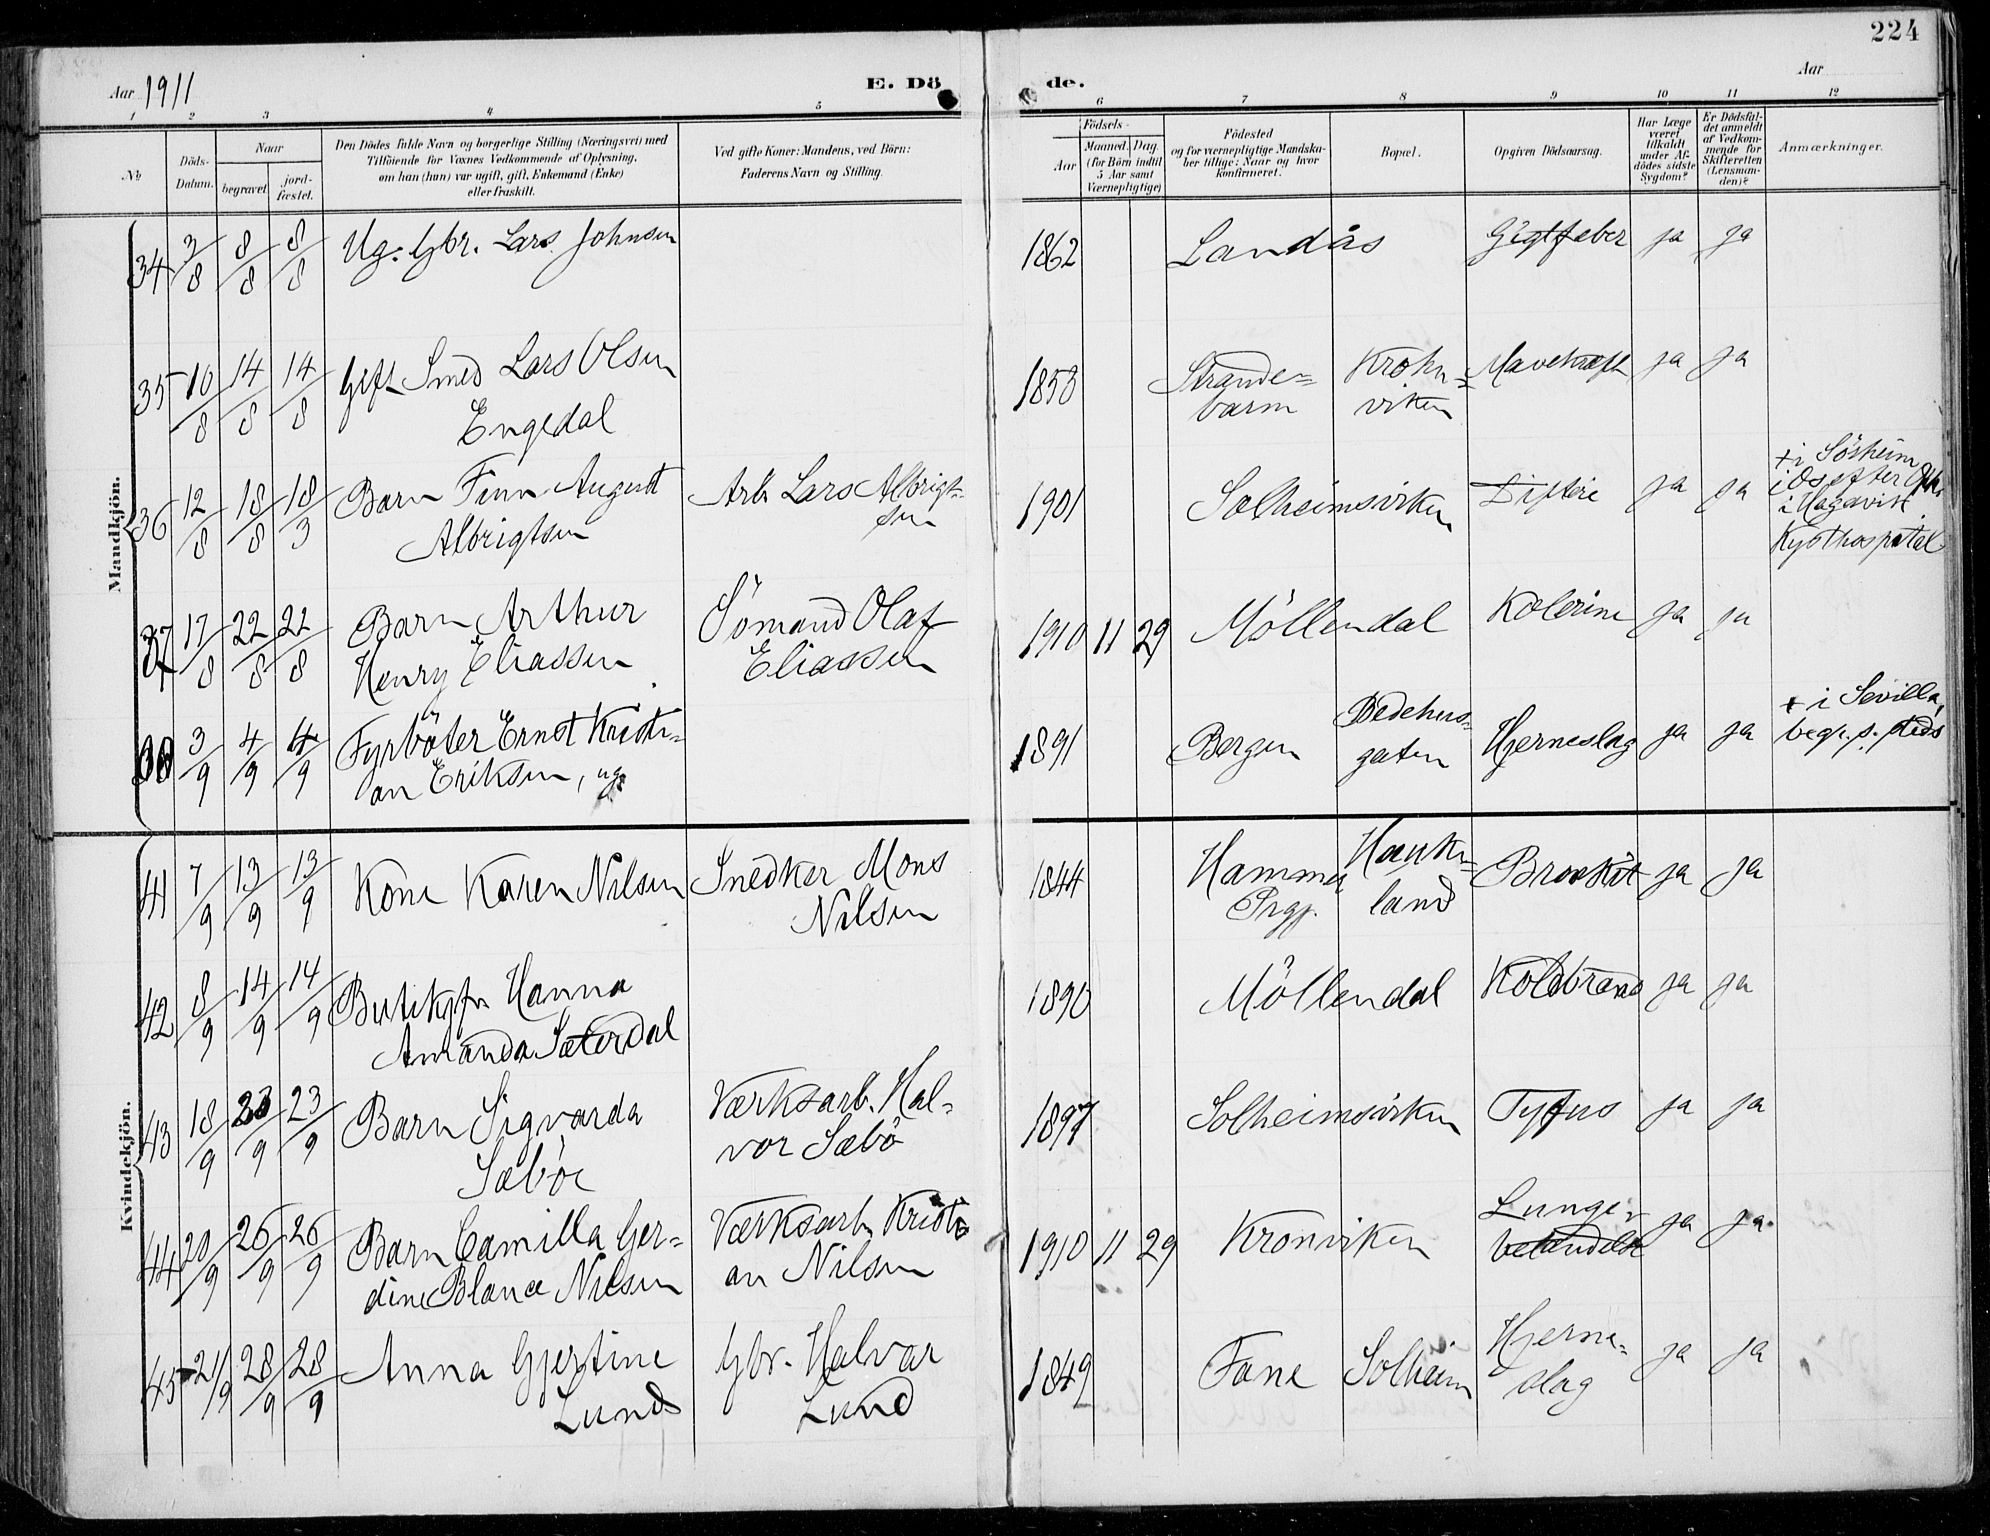 224
Aar 1911
E. Döde.
Aar
1 2 3 4 5 6 7 8 9 10 11 12
No
Döds-
Datum.
Naar
begravet
jord-
fæstet.
Den Dödes fulde Navn og borgerlige Stilling (Næringsvei) med
Tilföiende for Voxnes Vedkommende af Oplysning,
om han (hun) var ugift, gift, Enkemand (Enke)
eller fraskilt.
Ved gifte Koner: Mandens, ved Börn:
Faderens Navn og Stilling.
Födsels-
Aar
Maaned. Dag.
(for Börn indtil
5 Aar samt
Værnepligtige)
Födested
og for værnepligtige Mandska-
ber tillige: Naar og hvor
konfirmeret.
Bopæl.
Opgiven Dödsaarsag.
Har Læge
været
tilkaldt
under Af-
dödes sidste
Sygdom?
Er Dödsfal-
det anmeldt
af Vedkom-
mende for
Skifteretten
(Lensman-
den)?
Anmærkninger.
Mandkjön.
34 3/8 8/8 8/8 Ug. Gbr. Lars Johnsen 1862 Landås Gigtfeber ja ja
35 10/8 14/8 14/8 Gift Smed Lars Olsen 1853 Strande- Krohn- Mavekræft ja ja
Engedal barm viken
36 12/8 18/8 18/3 Barn Finn August Arb. Lars Albrigt- 1901 Solheimsviken Difteri ja ja
Albrigtsen sen
+ i
i Os efter
i Hagavik
Kysthospital
37 17/8 22/8 22/8 Barn Arthur Sömand Olaf 1910 11 29 Möllendal Kolerine ja ja
Henry Eliassen Eliassen
38 3/9 4/9 4/9 Fyrböter Ernst Kristi- 1891 Bergen Bedehus- Hjerneslag ja ja + i Sevilla,
an Eriksen, ug. gaten begr. s. steds
Kvindekjön.
41 7/9 13/9 13/9 Kone Karen Nilsen Snedker Mons 1844 Hammer Hauke- Bronkit ja ja
Nilsen Prgj. land
42 8/9 14/9 14/9 Butikfr Hanna 1890 Möllendal Koldbrand ja ja
Amanda Sæterdal
43 18/9 23/9 23/9 Barn Sigvarda Værksarb. Hal- 1897 Solheimsviken Tyfus ja ja
Sæböe vor Sæbö
44 20/9 26/9 26/9 Barn Camilla Ger- Værksarb. Kristi 1910 11 29 Kronviken Lunge- ja ja
dine Blanca Nilsen an Nilsen betændelse
45 21/9 28/9 28/9 Anna Gjertine Gbr. Halvar 1849 Fane Solheim Hjerne- ja ja
Lund Lund slag